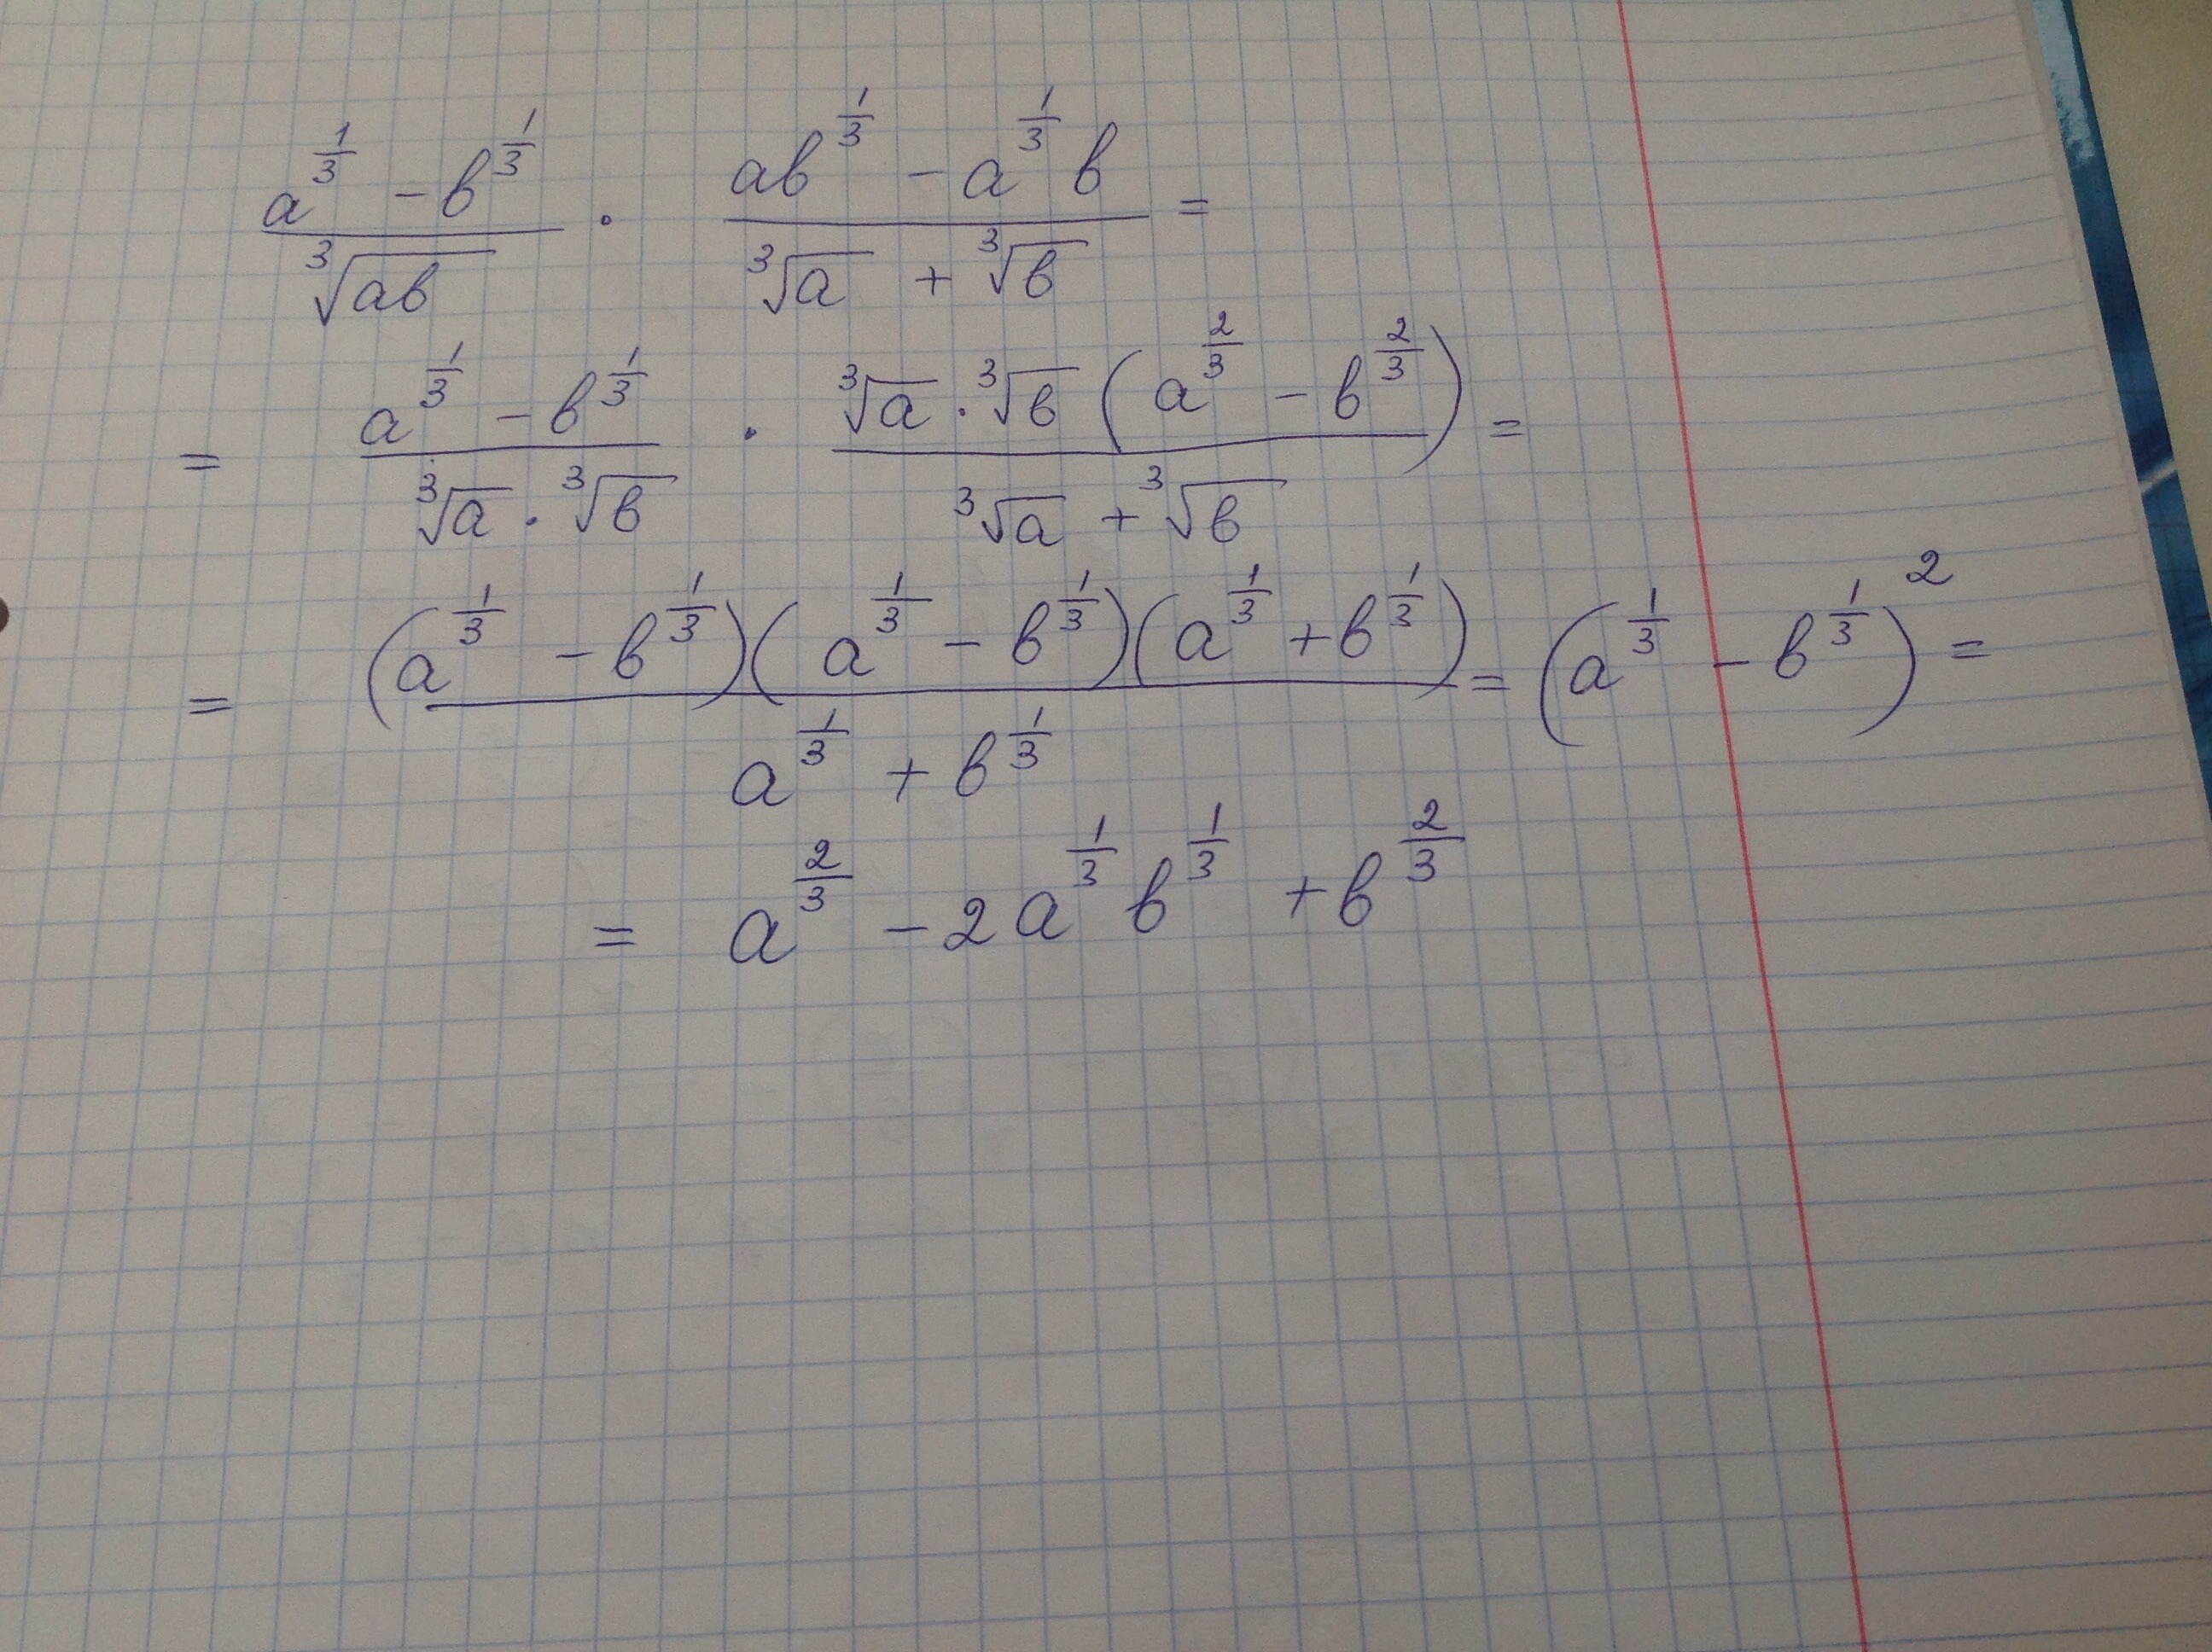 \frac{a^{\frac{1}{3}} - b^{\frac{1}{3}}}{\sqrt[3]{ab}} \cdot \frac{ab^{\frac{1}{3}} - a^{\frac{1}{3}} b}{\sqrt[3]{a} + \sqrt[3]{b}} =
= \frac{a^{\frac{1}{3}} - b^{\frac{1}{3}}}{\sqrt[3]{a} \cdot \sqrt[3]{b}} \cdot \frac{\sqrt[3]{a} \cdot \sqrt[3]{b} (a^{\frac{2}{3}} - b^{\frac{2}{3}})}{\sqrt[3]{a} + \sqrt[3]{b}} =
= \frac{(a^{\frac{1}{3}} - b^{\frac{1}{3}})(a^{\frac{1}{3}} - b^{\frac{1}{3}})(a^{\frac{1}{3}} + b^{\frac{1}{3}})}{a^{\frac{1}{3}} + b^{\frac{1}{3}}} = (a^{\frac{1}{3}} - b^{\frac{1}{3}})^2 =
= a^{\frac{2}{3}} - 2a^{\frac{1}{3}} b^{\frac{1}{3}} + b^{\frac{2}{3}}